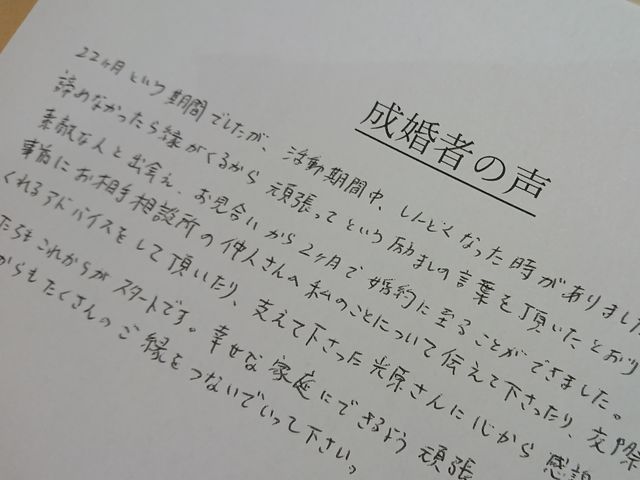 成婚者の声
22ヶ月という期間でしたが、活動期間中、しんどくなった時がありました
諦めなかったら縁がくるから頑張ってという励ましの言葉を頂いたとおり
素敵な人と出会え、お見合いから2ヶ月で婚約に至ることができました。
事前にお相手相談所の仲人さんへ私のことについて伝えて下さったり、交際
くれるアドバイスをして頂いたり、支えて下さった光原さんに心から感謝
たちもこれからがスタートです。幸せな家庭にできるよう頑張
からもたくさんのご縁をつないでいって下さいっ